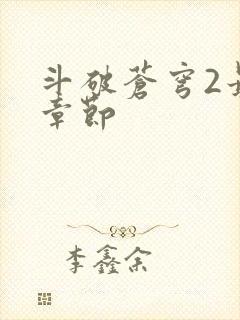 斗破苍穹2
章节
李鑫余